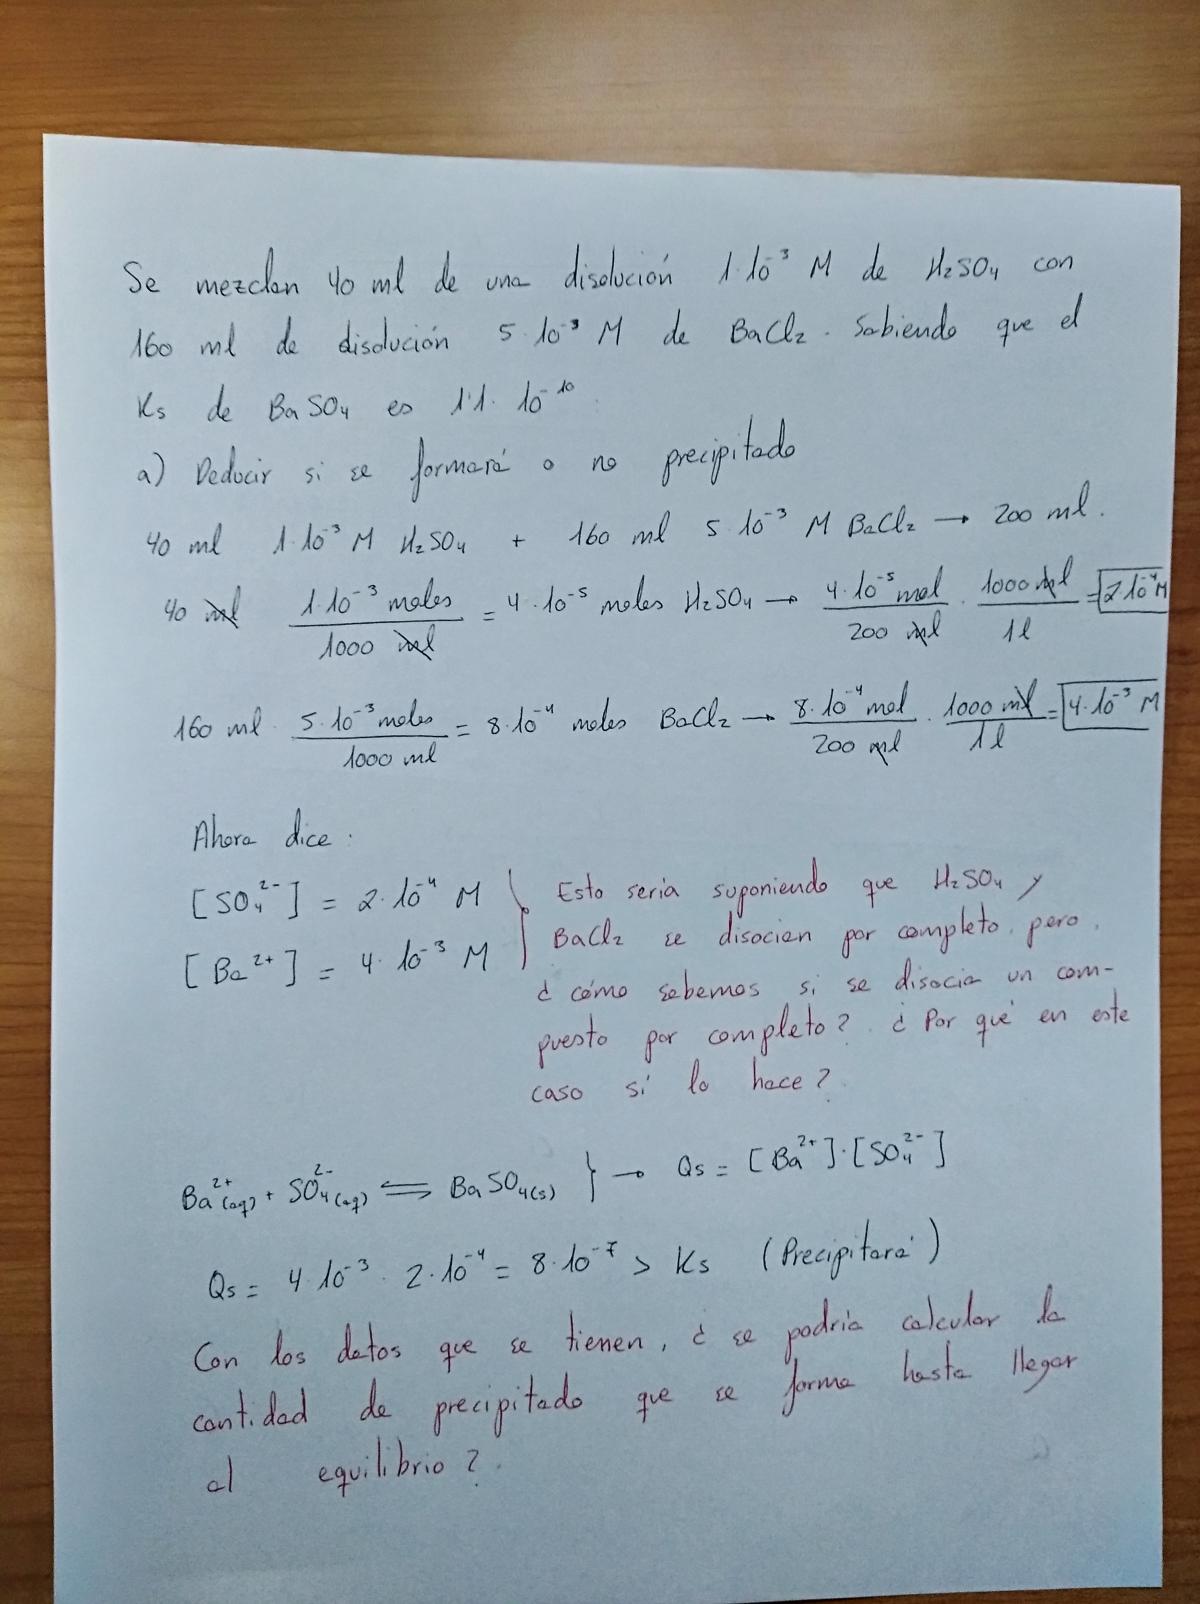 Se mezclan 40 ml de una disolución 1·10⁻³ M de H₂SO₄ con
160 ml de disolución 5·10⁻³ M de BaCl₂. Sabiendo que el
Ks de BaSO₄ es 1'1·10⁻¹⁰.
a) Deducir si se formará o no precipitado
40 ml 1·10⁻³ M H₂SO₄ + 160 ml 5·10⁻³ M BaCl₂ → 200 ml.
40 ml 1·10⁻³ moles / 1000 ml = 4·10⁻⁵ moles H₂SO₄ → 4·10⁻⁵ mol / 200 ml · 1000 ml / 1l = 2·10⁻⁴ M
160 ml · 5·10⁻³ moles / 1000 ml = 8·10⁻⁴ moles BaCl₂ → 8·10⁻⁴ mol / 200 ml · 1000 ml / 1l = 4·10⁻³ M
Ahora dice:
[SO₄²⁻] = 2·10⁻⁴ M
[Ba²⁺] = 4·10⁻³ M
Esto sería suponiendo que H₂SO₄ y
BaCl₂ se disocian por completo, pero,
¿cómo sabemos si se disocia un com-
puesto por completo? ¿Por qué en este
caso sí lo hace?
Ba²⁺(aq) + SO₄²⁻(aq) ⇌ BaSO₄(s) } → Qs = [Ba²⁺]·[SO₄²⁻]
Qs = 4·10⁻³ · 2·10⁻⁴ = 8·10⁻⁷ > Ks (Precipitará)
Con los datos que se tienen, ¿se podría calcular la
cantidad de precipitado que se forma hasta llegar
al equilibrio?